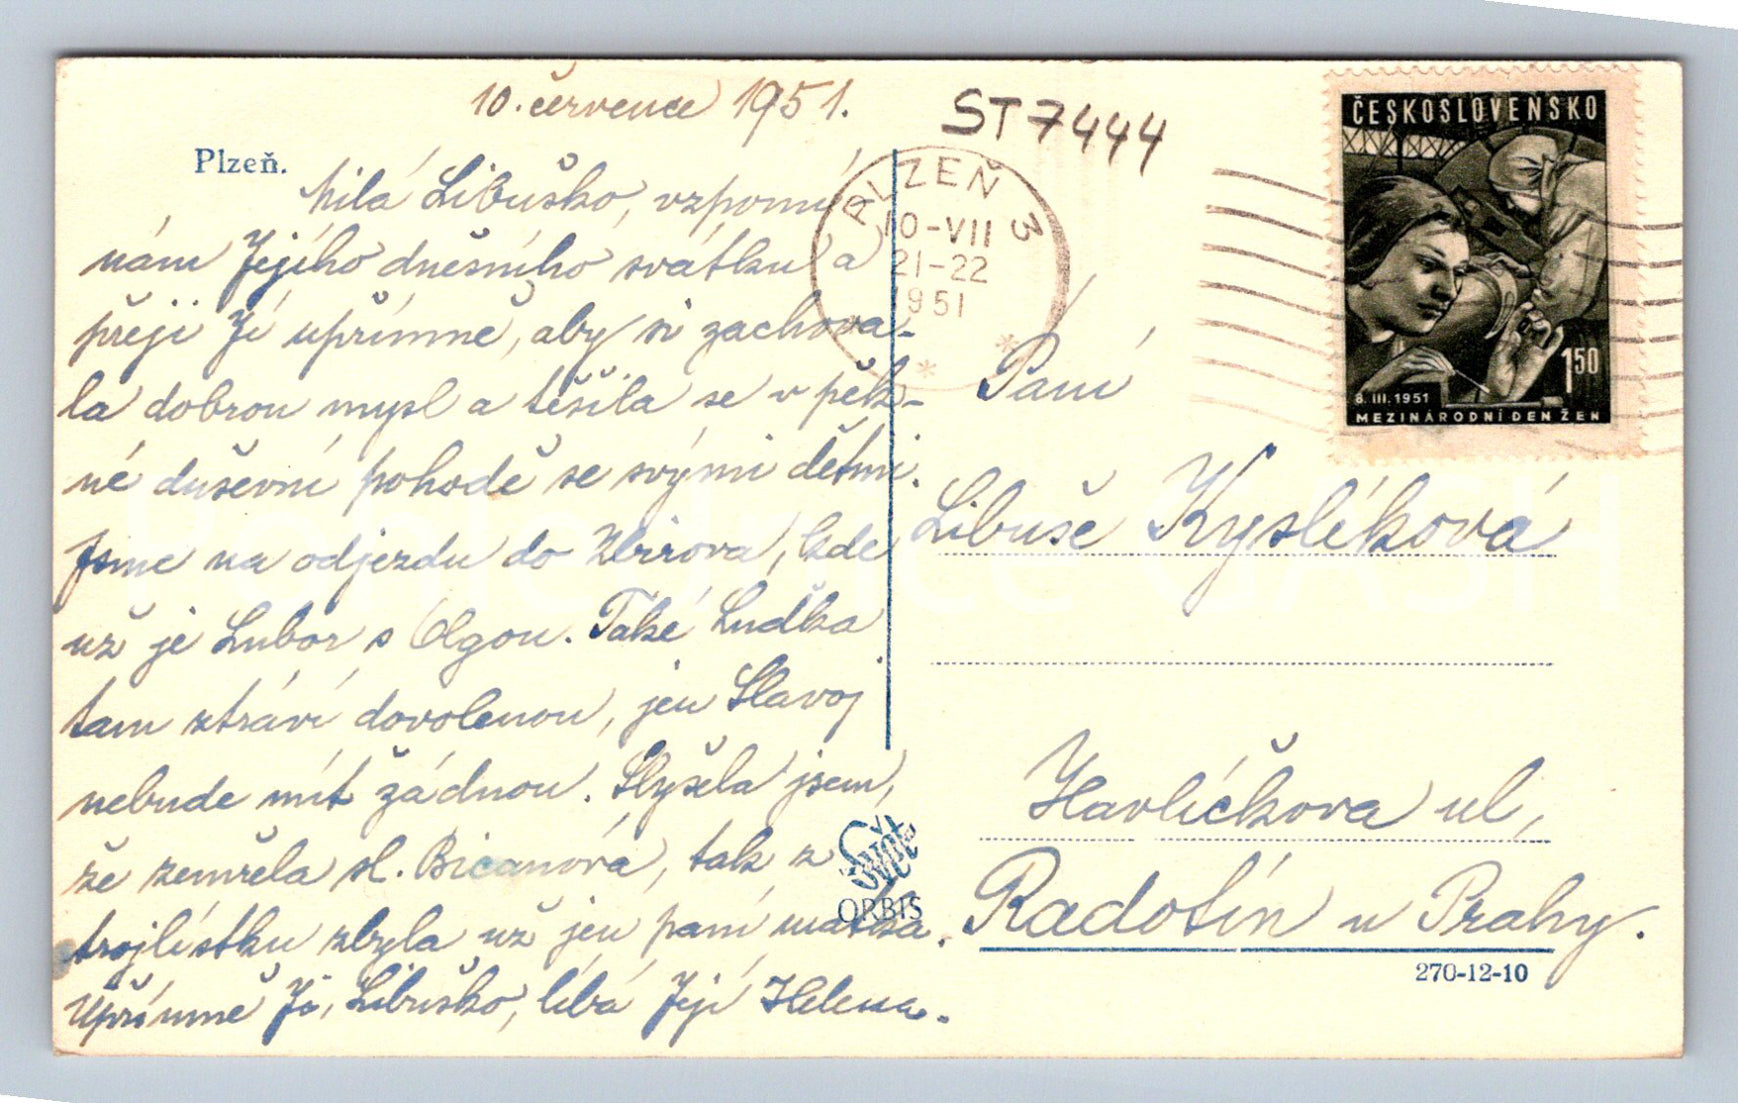 10. července 1951.
ST 7444
Plzeň.
Milá Libuško, vzpomí
nám Jejího dnešního svátku a
přeji Jí upřímně, aby si zachova-
la dobrou mysl a těšila se v pěk-
né duševní pohodě se svými dětmi.
Jsme na odjezdu do Zbirova, kde
už je Lubor s Olgou. Také Luďka
tam ztráví dovolenou, jen Slavoj
nebude mít žádnou. Slyšela jsem,
že zemřela sl. Bicanová, tak z
trojlístku zbyla už jen paní matka.
Upřímně Ji, Libuško, líbá Její Helena.
PLZEŇ 3
10-VII
21-22
1951
* *
ČESKOSLOVENSKO
150
8. III. 1951
MEZINÁRODNÍ DEN ŽEN
Paní
Libuše Kyslíková
Havlíčkova ul,
Radotín u Prahy.
270-12-10
Svět
ORBIS
Pohlednice GASH